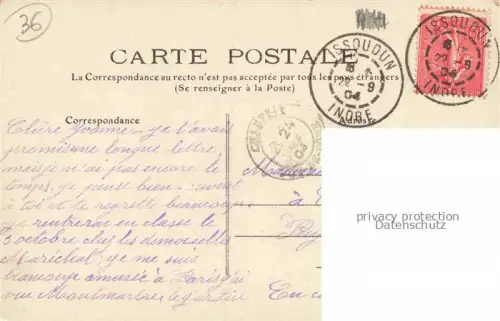 36
ISSOUDUN
8
22 - 9
04
INDRE
ISSOUDUN
8
9
04
INDRE
CARTE POSTALE
La Correspondance au recto n'est pas acceptée par tous les pays étrangers
(Se renseigner à la Poste)
Correspondance
Adresse
Chère Yvonne - je t'avais
promis une longue lettre,
mais je n'ai pas encore le
temps. je pense bien souvent
à toi et te regrette beaucoup
je rentrerai en classe le
3 octobre chez les demoiselles
Maréchal; je me suis
beaucoup amusée à Paris j'ai
vue Montmartre le jardin
23
04
à
En
privacy protection
Datenschutz